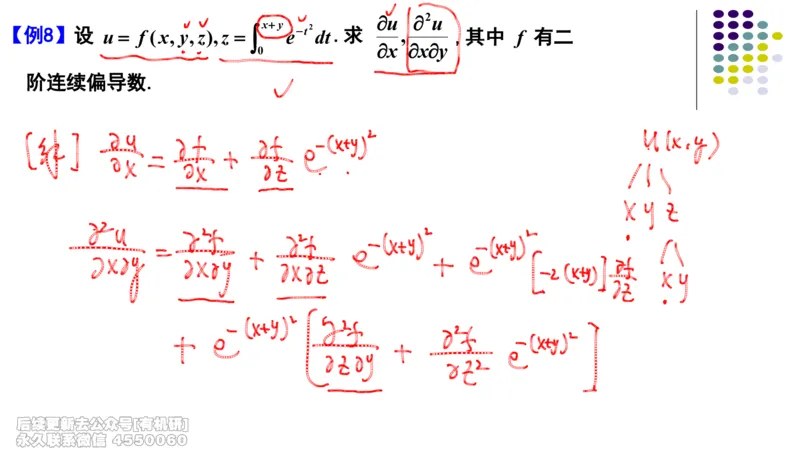 【例8】设 u = f(x, y, z), z = ∫₀^{x+y} e^{-t²} dt. 求 ∂u/∂x, ∂²u/∂x∂y, 其中 f 有二
阶连续偏导数.
[解] ∂u/∂x = ∂f/∂x + ∂f/∂z e^{-(x+y)²}
u(x,y)
x y z
x y
∂²u/∂x∂y = ∂²f/∂x∂y + ∂²f/∂x∂z e^{-(x+y)²} + e^{-(x+y)²} [-2(x+y)] ∂f/∂z
+ e^{-(x+y)²} [∂²f/∂z∂y + ∂²f/∂z² e^{-(x+y)²}]
后续更新去公众号[有机研]
永久联系微信 4550060